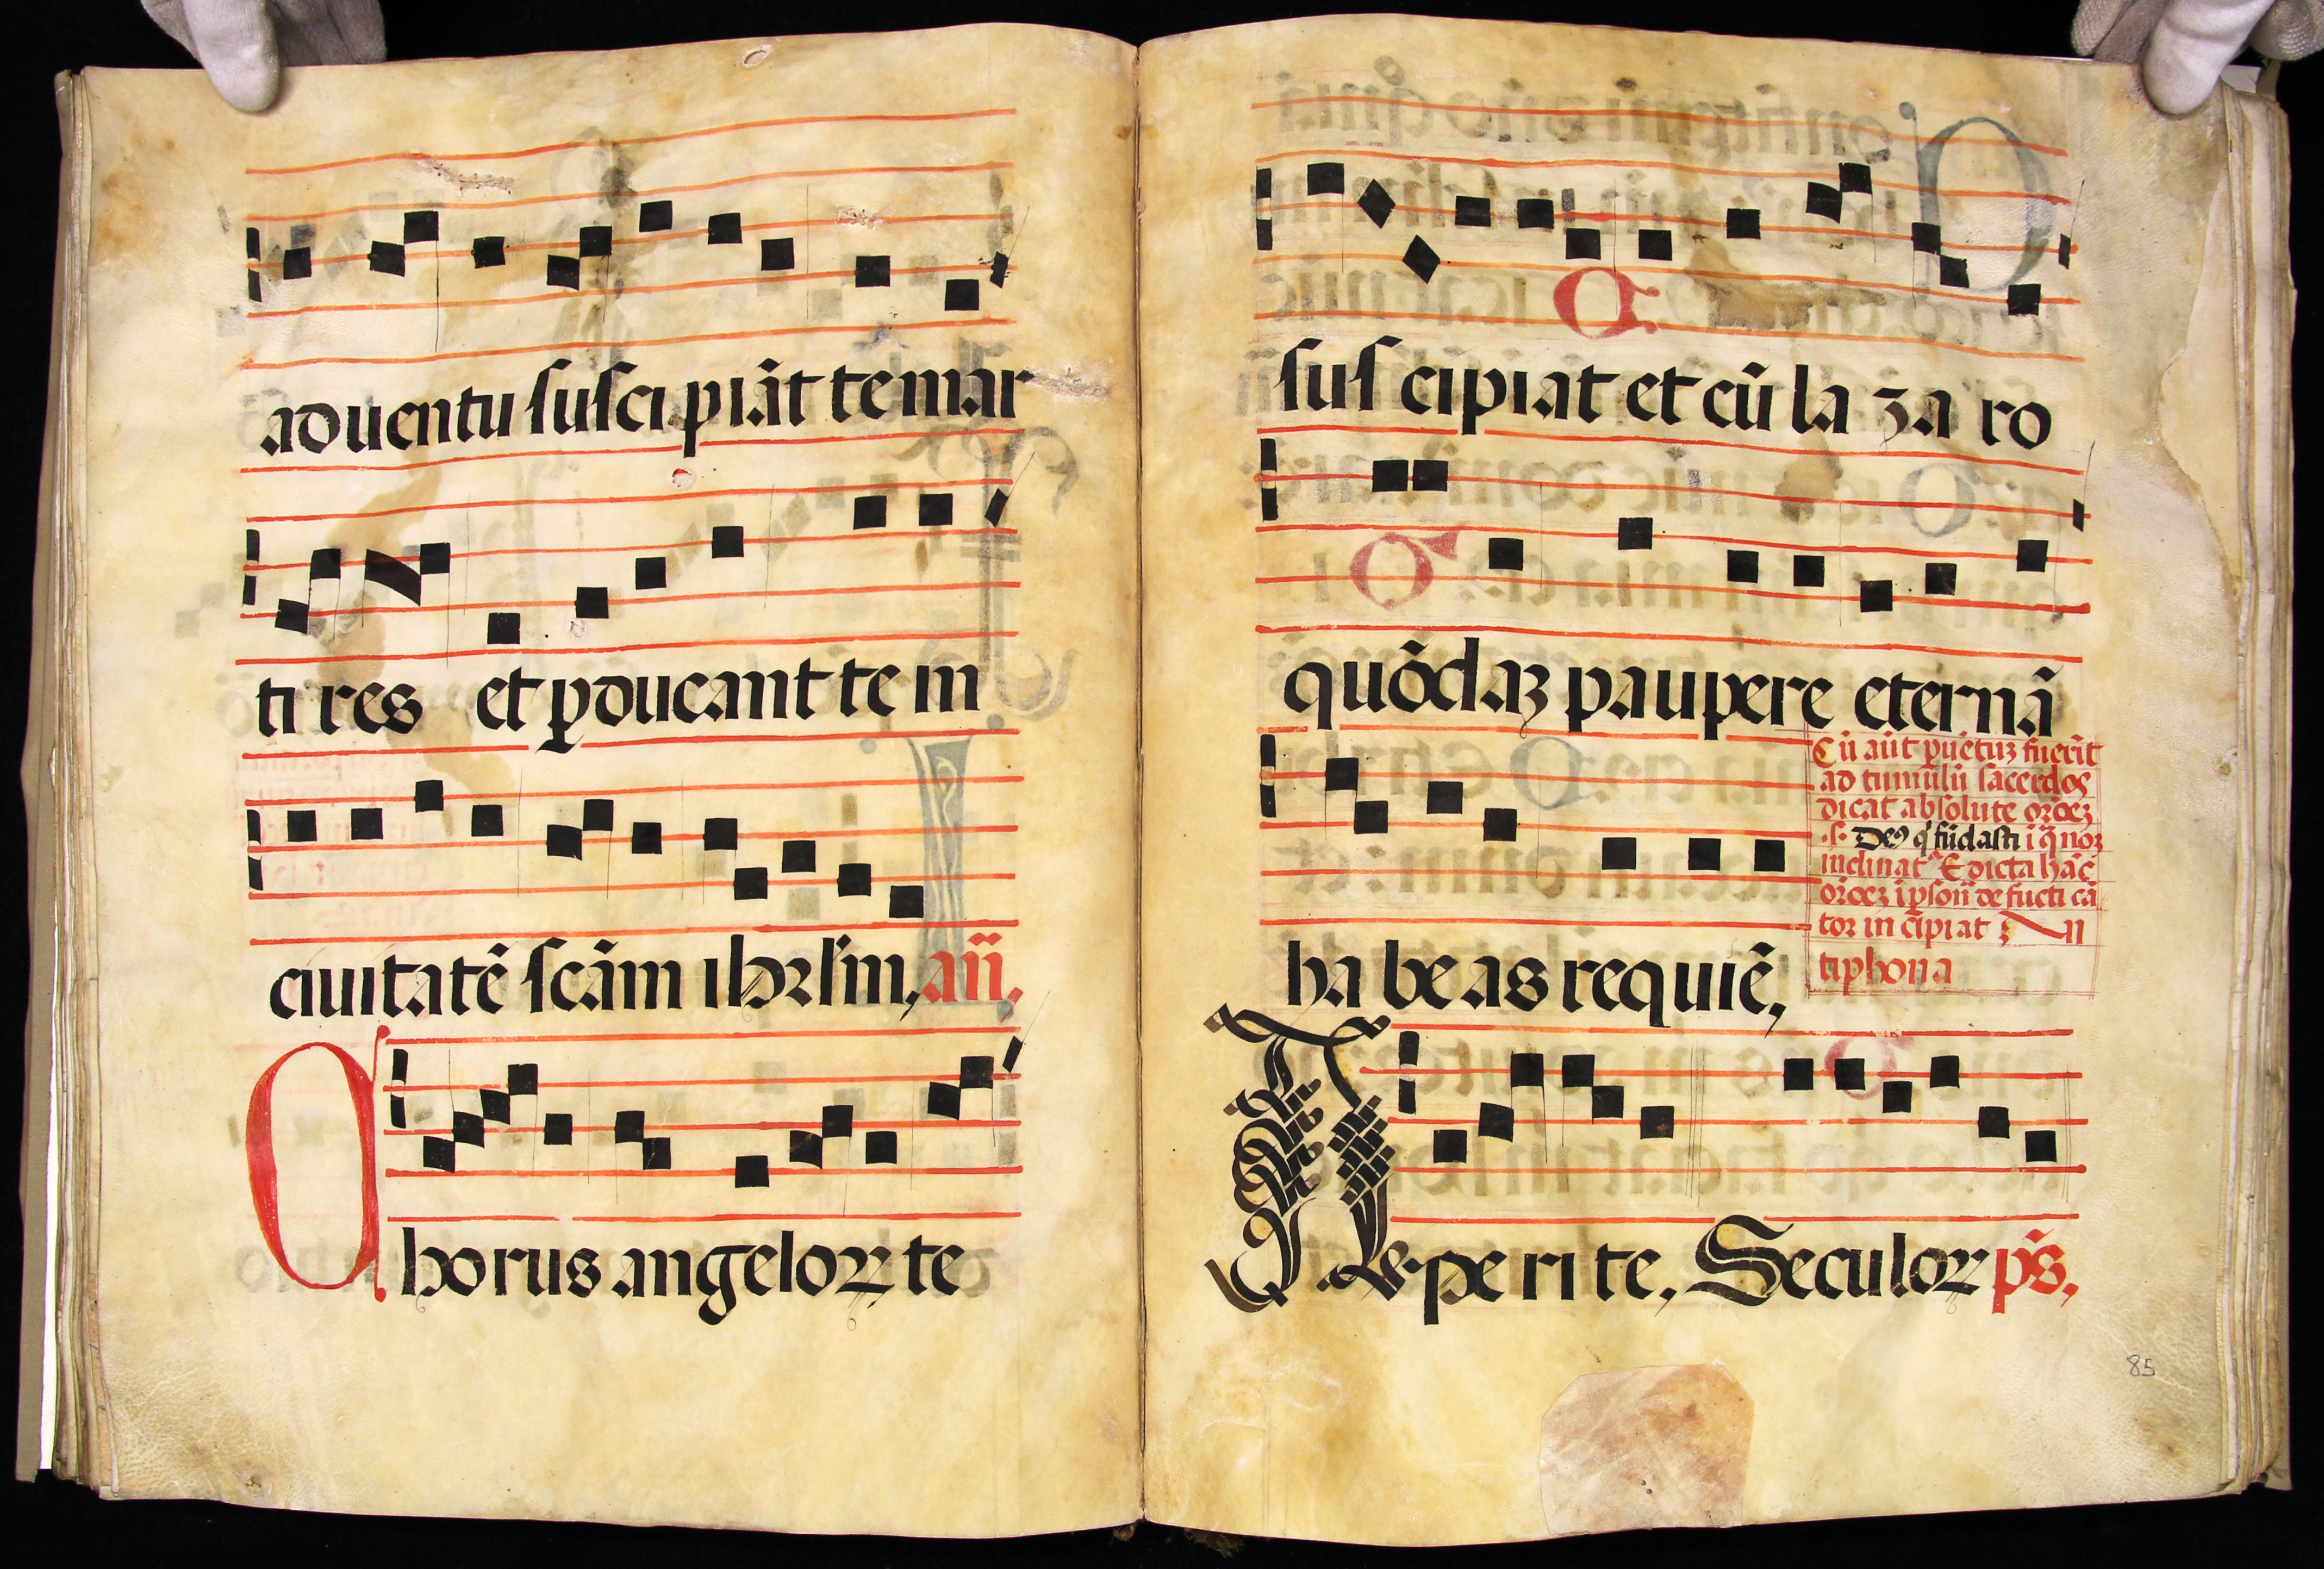 aduentu suscipiāt te mar
tires et ꝑducant te in
ciuitatē scām ihrlm̄, añ,
Chorus angeloꝝ te
suscipiat et cū lazaro
quōdaꝫ paupere eternā
Cū aūt puētuꝫ fuerit
ad tumulū sacerdos
dicat absolute oroeꝫ
.s. Deꝰ q̄ fūdasti i q̄ noꝫ
inclinat Et dicta hāc
oroeꝫ ipson de fucti cā
tor in cipiat ꝫ An
tiphona
habeas requiē,
Aperite, Seculoꝝ ps̄,
85